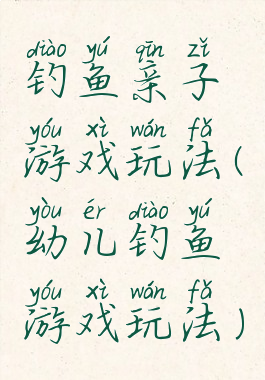 diào yú qīn zǐ
钓鱼亲子
yóu xì wán fǎ
游戏玩法(
yòu ér diào yú
幼儿钓鱼
yóu xì wán fǎ
游戏玩法)